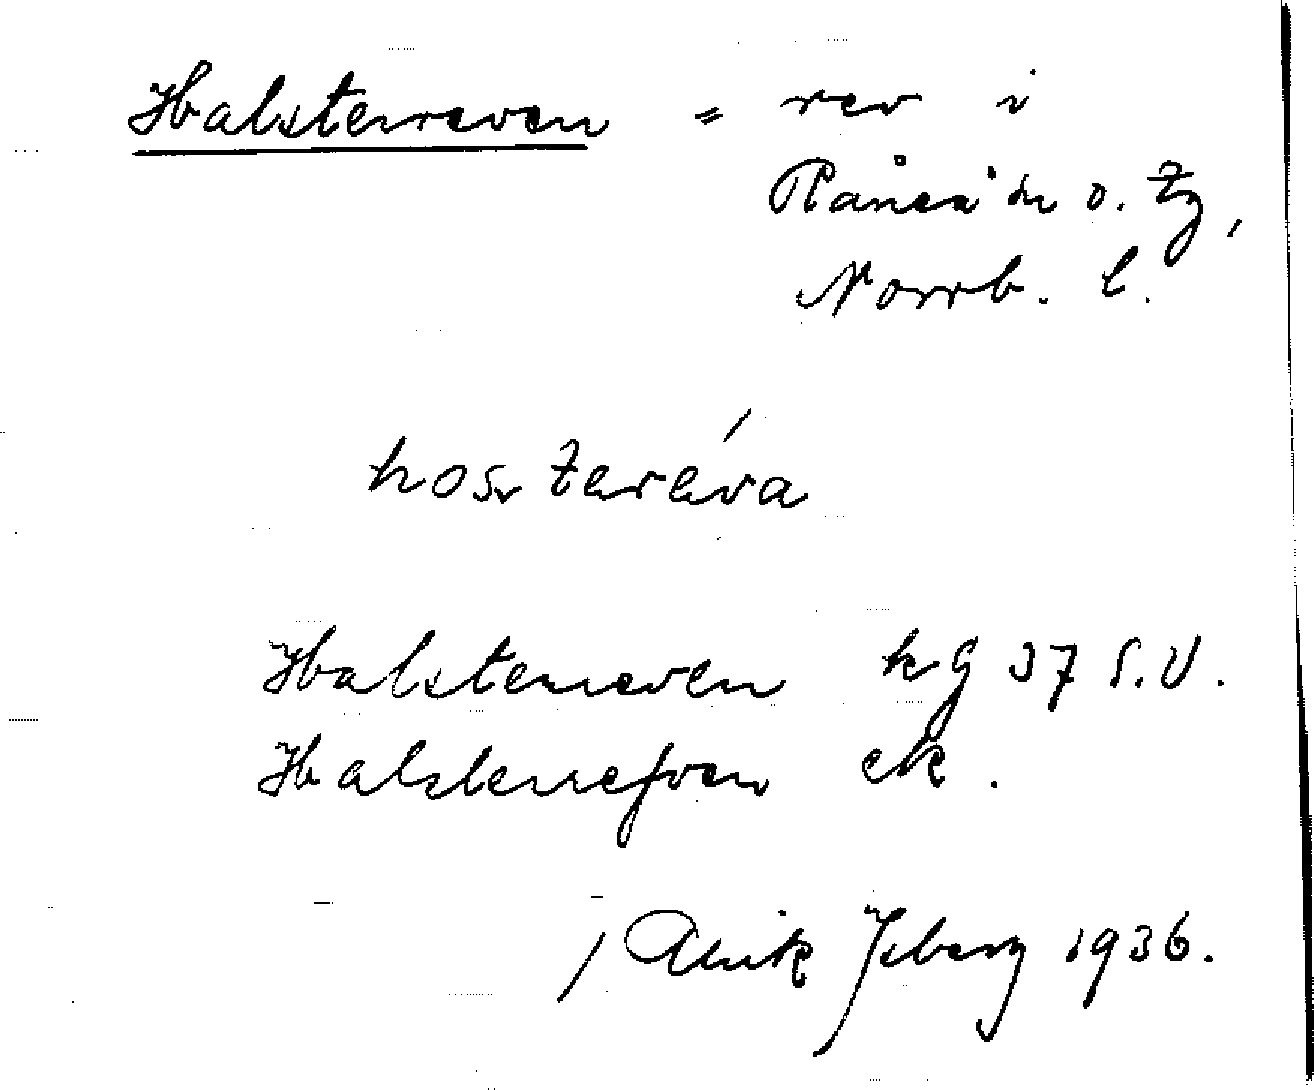 Halsterreven = rev i
Råneå sn o. tg,
Norrb. l.
hosterǽva
Halsterreven kg 37 S.V.
Halsterrefven ek.
/ Ulrik Isberg 1936.